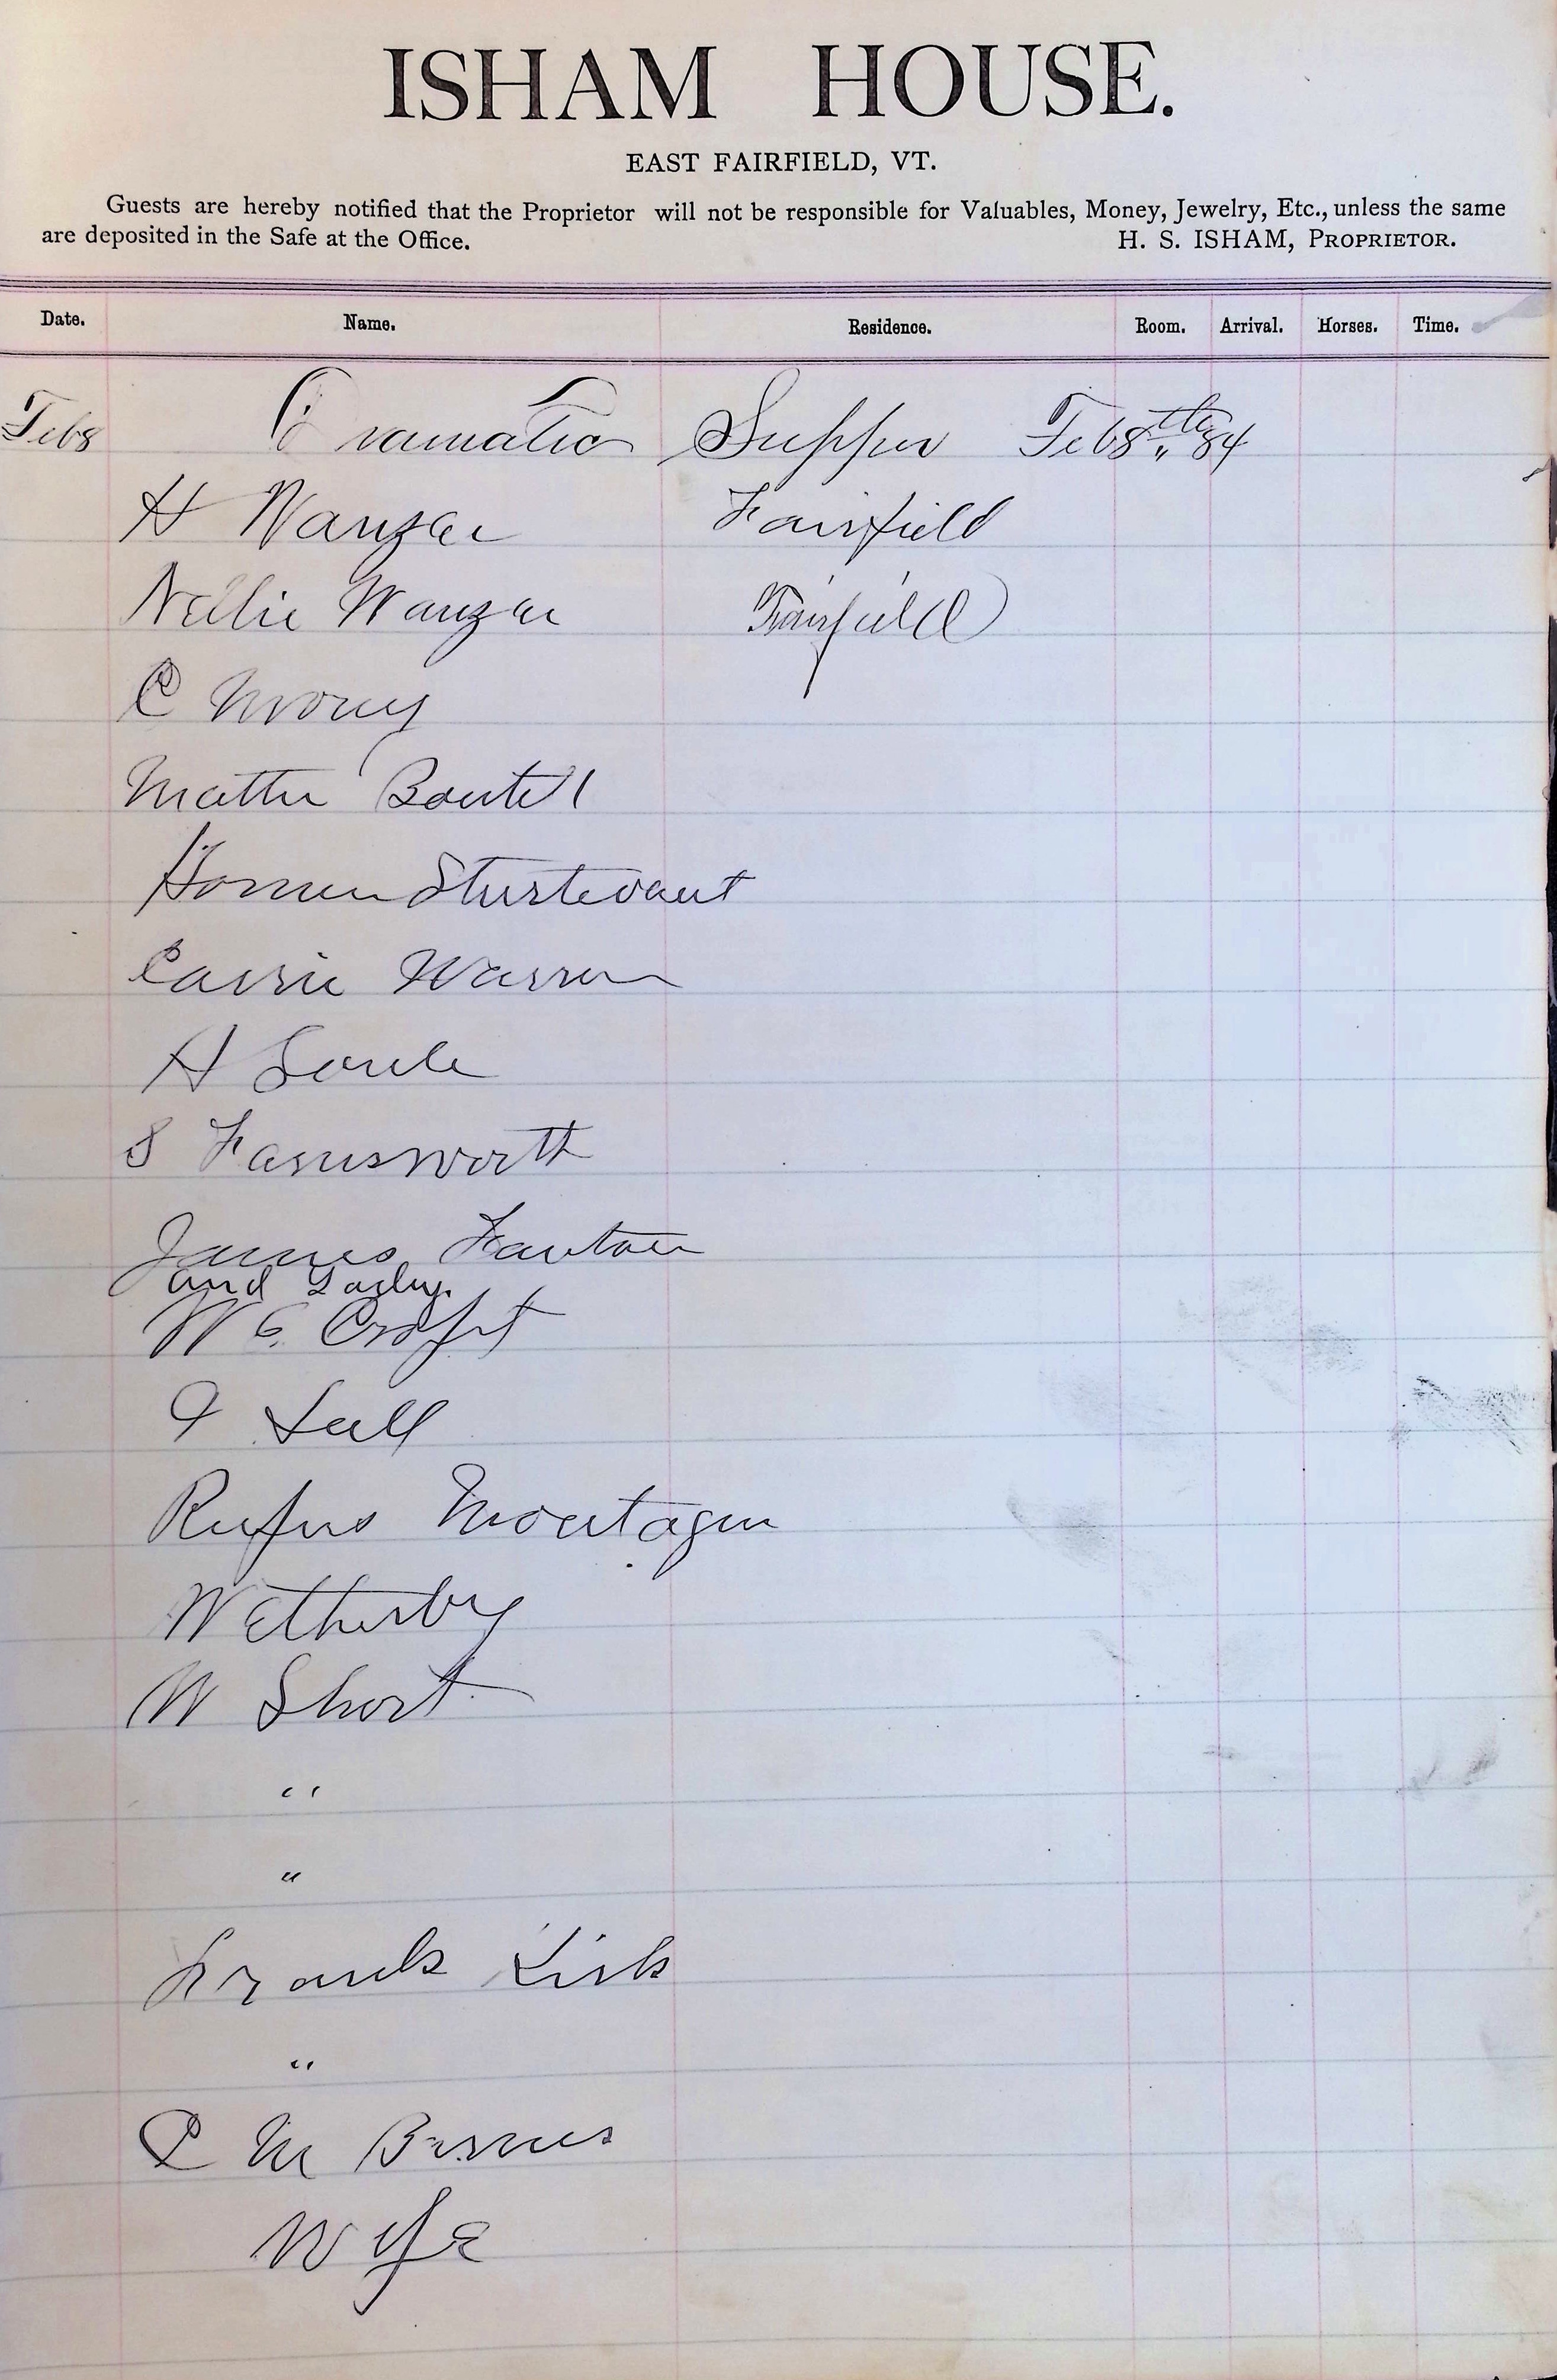 ISHAM HOUSE.
EAST FAIRFIELD, VT.
Guests are hereby notified that the Proprietor will not be responsible for Valuables, Money, Jewelry, Etc., unless the same
are deposited in the Safe at the Office. H. S. ISHAM, PROPRIETOR.
Date. Name. Residence. Room. Arrival. Horses. Time.
Feb 8 Dramatic Supper Feb 8th 84
H Wanzer Fairfield
Nellie Wanzer Fairfield
C
Mattie Boutell
Homer Sturtevant
Carrie Warren
H Soule
S Farnsworth
James
and Lady.
W C. Croft
Lull
Rufus Montague
Wetherby
W Short
"
"
Frank Kirk
"
C M Barnes
Wife